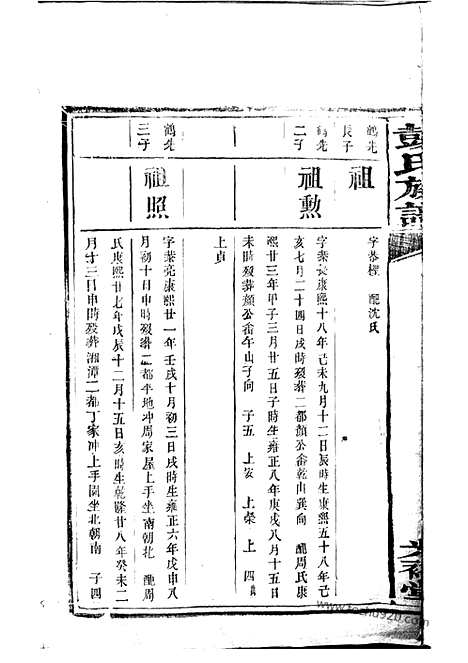 彭氏族譜
鶴先
長子
祖
字恭樑 配沈氏
鶴先
二子
祖勲
字葉長康熙十八年己未九月十二日辰時生康熙五十八年己
亥七月二十四日戌時殁葬二都顏公畬乾山巽向 配周氏康
熙廿三年甲子三月廿五日子時生雍正八年庚戌八月十五日
未時殁葬顏公畬午山子向 子五 上安 上榮 上 四
上貞
鶴先
三子
祖照
字葉亮康熙廿一年壬戌十月初三日戌時生雍正六年戊申八
月初十日申時殁葬二都平地冲周家屋上手坐南朝北 配周
氏康熙廿七年戊辰十二月十五日亥時生乾隆廿八年癸未二
月十三日申時殁葬湘潭二都丁家冲上手園坐北朝南 子四